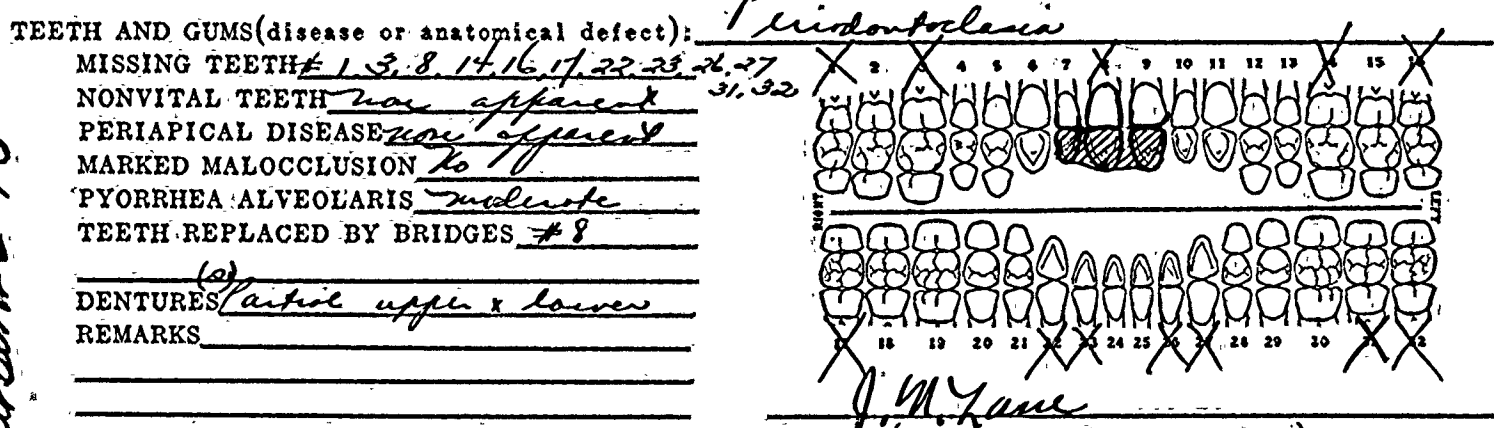 TEETH AND GUMS(disease or anatomical defect): Periodontoclasia
MISSING TEETH # 1, 3, 8, 14, 16, 17, 22, 23, 26, 27
31, 32
NONVITAL TEETH none apparent
PERIAPICAL DISEASE none apparent
MARKED MALOCCLUSION No
PYORRHEA ALVEOLARIS moderate
TEETH REPLACED BY BRIDGES #8
(a)
DENTURES Partial upper & lower
REMARKS
1 2 3 4 5 6 7 8 9 10 11 12 13 14 15 16
RIGHT LEFT
17 18 19 20 21 22 23 24 25 26 27 28 29 30 31 32
J. M. Lane